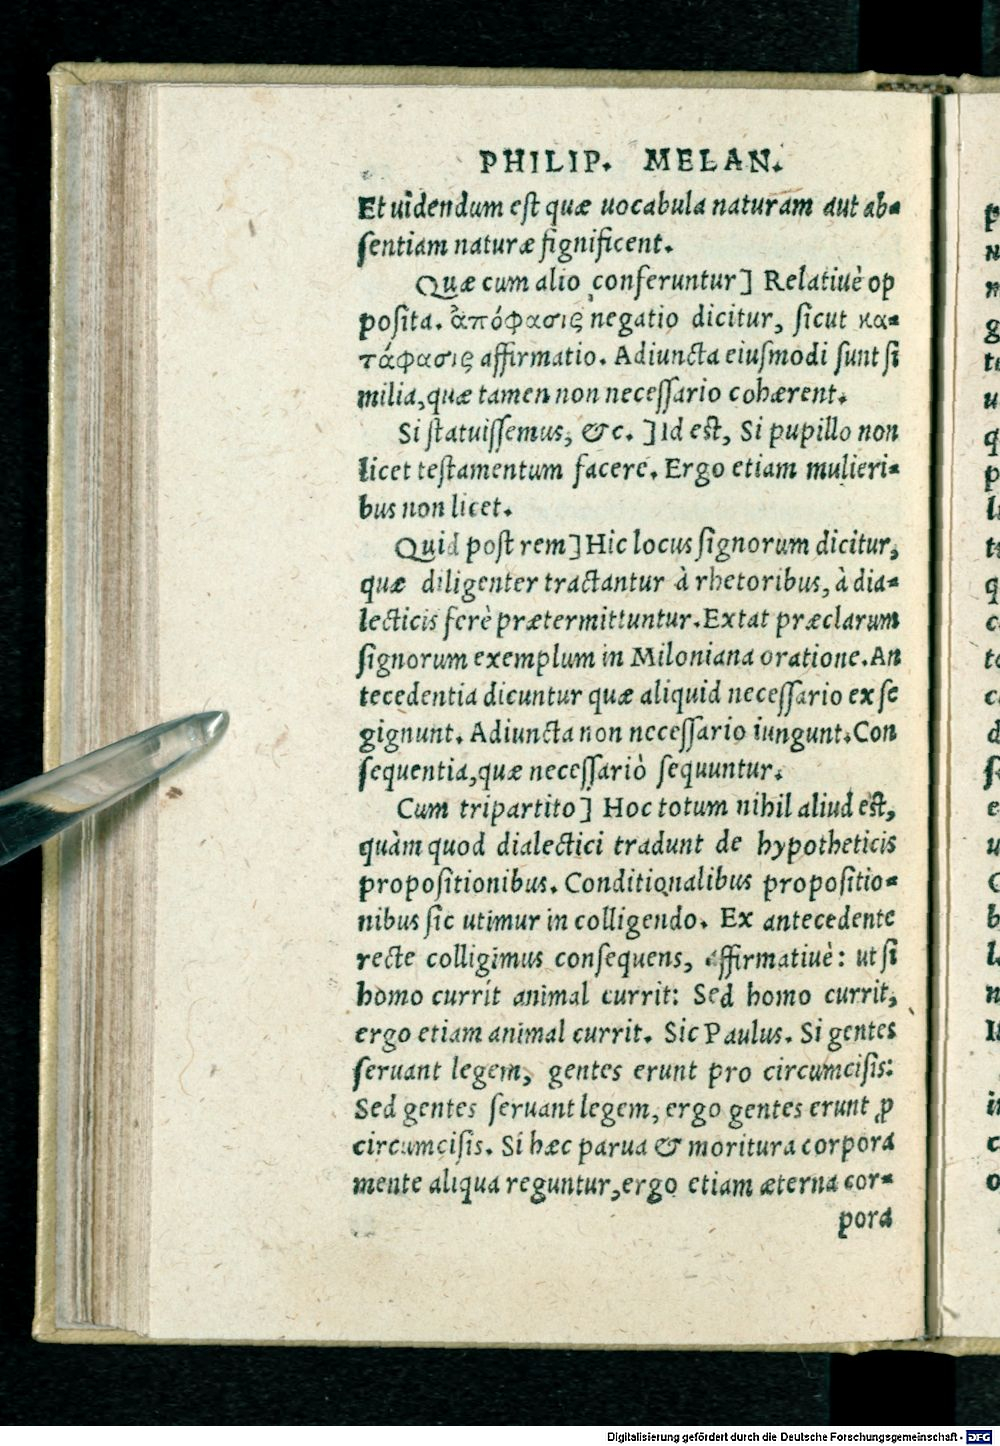 PHILIP. MELAN.
Et uidendum est quæ uocabula naturam aut ab-
sentiam naturæ significent.
Quæ cum alio conferuntur] Relatiuè op
posita. ἀπόφασις negatio dicitur, sicut κα-
τάφασις affirmatio. Adiuncta eiusmodi sunt si
milia, quæ tamen non necessario cohærent.
Si statuissemus, &c. ] Id est, Si pupillo non
licet testamentum facere. Ergo etiam mulieri-
bus non licet.
Quid post rem] Hic locus signorum dicitur,
quæ diligenter tractantur à rhetoribus, à dia-
lecticis ferè prætermittuntur. Extat præclarum
signorum exemplum in Miloniana oratione. An
tecedentia dicuntur quæ aliquid necessario ex se
gignunt. Adiuncta non necessario iungunt. Con
sequentia, quæ necessariò sequuntur.
Cum tripartito] Hoc totum nihil aliud est,
quàm quod dialectici tradunt de hypotheticis
propositionibus. Conditionalibus propositio-
nibus sic utimur in colligendo. Ex antecedente
recte colligimus consequens, affirmatiuè: ut si
homo currit animal currit: Sed homo currit,
ergo etiam animal currit. Sic Paulus. Si gentes
seruant legem, gentes erunt pro circumcisis:
Sed gentes seruant legem, ergo gentes erunt ꝓ
circumcisis. Si hæc parua & moritura corpora
mente aliqua reguntur, ergo etiam æterna cor-
pora
Digitalisierung gefördert durch die Deutsche Forschungsgemeinschaft - DFG